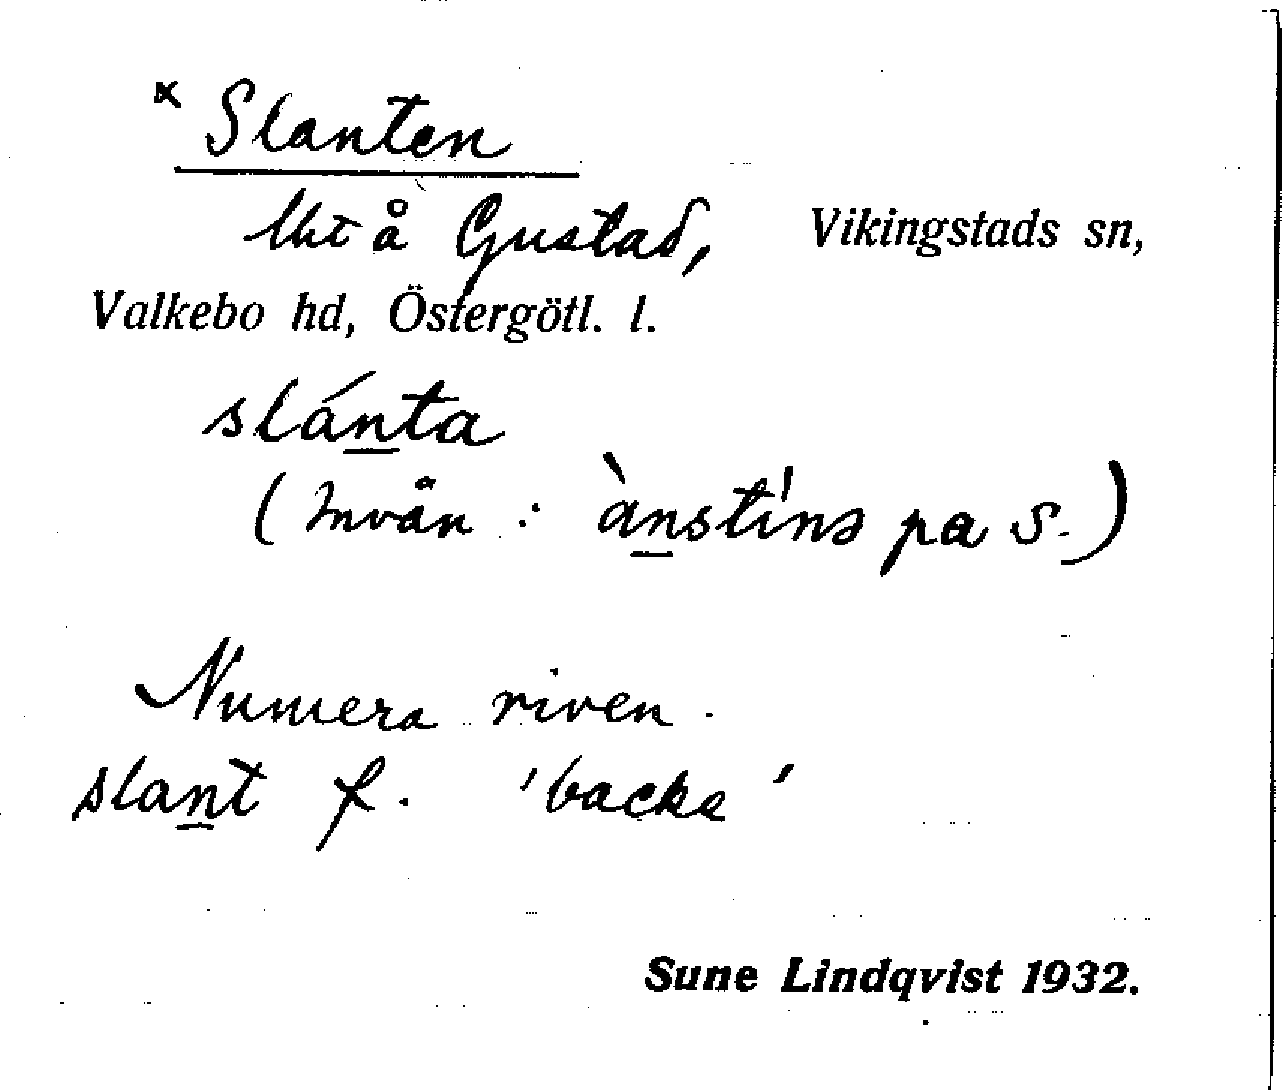 × Slanten
lht å Gustad, Vikingstads sn,
Valkebo hd, Östergötl. l.
slánta
(Invån: ànstíns pa S.)
Numera riven.
slant f. 'backe'
Sune Lindqvist 1932.